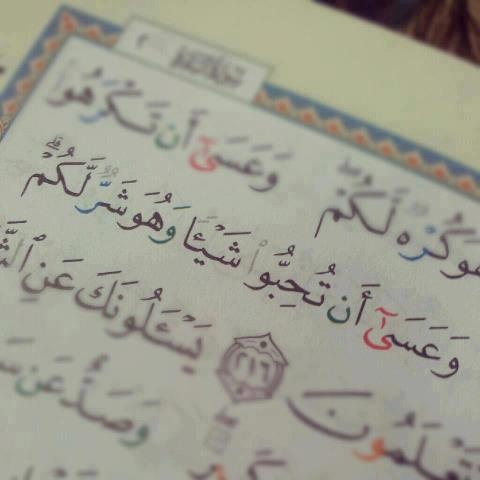 سورة البقرة ٢
هو كُرْهٌ لَّكُمْ وَعَسَىٰٓ أَن تَكْرَهُوا
وَعَسَىٰٓ أَن تُحِبُّوا۟ شَيْـًٔا وَهُوَ شَرٌّ لَّكُمْ
تَعْلَمُونَ ٢١٦ يَسْـَٔلُونَكَ عَنِ ٱلشَّ
وَصَدٌّ عَن